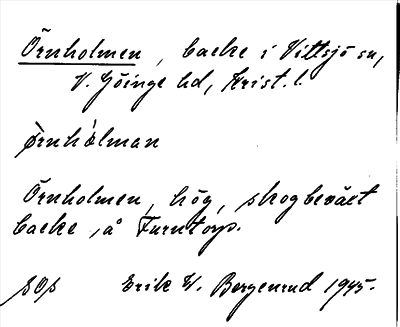 Örnholmen, backe i Vittsjö sn,
V. Göinge hd, Krist. l.
Örnhòlman
Örnholmen, hög, skogbeväxt
backe, å Furutorp.
SOS Erik W. Bergenrud 1945.